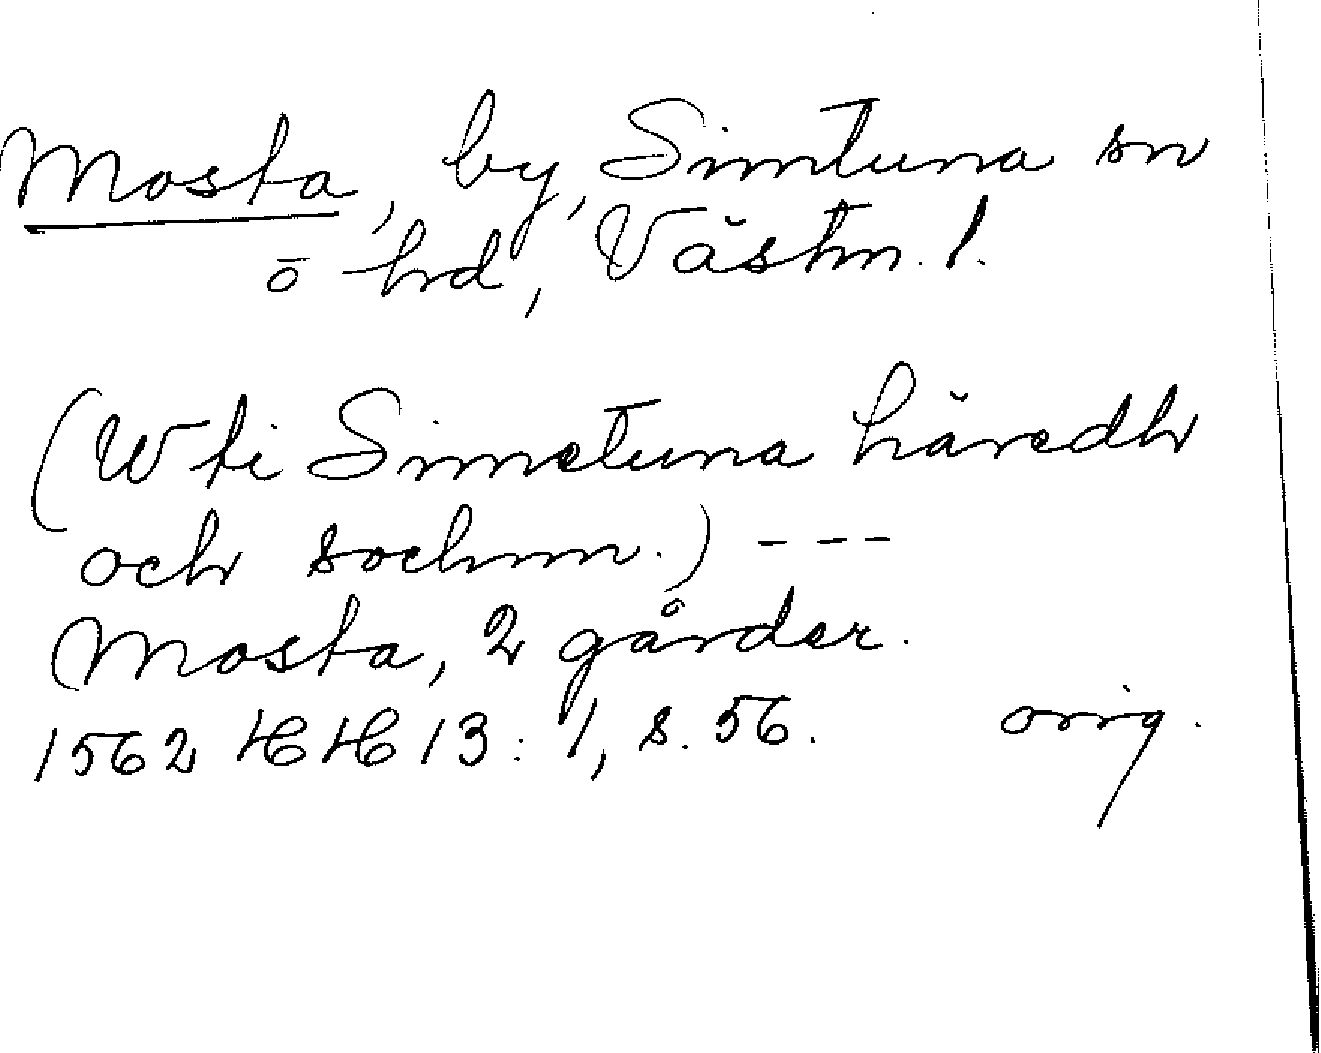 Mosta, by, Simtuna sn
o hrd, Västm. l.
(Wti Simetuna häredh
och sochnn.) ---
Mosta, 2 gårder.
1562 HH 13:1, s. 56. orig.